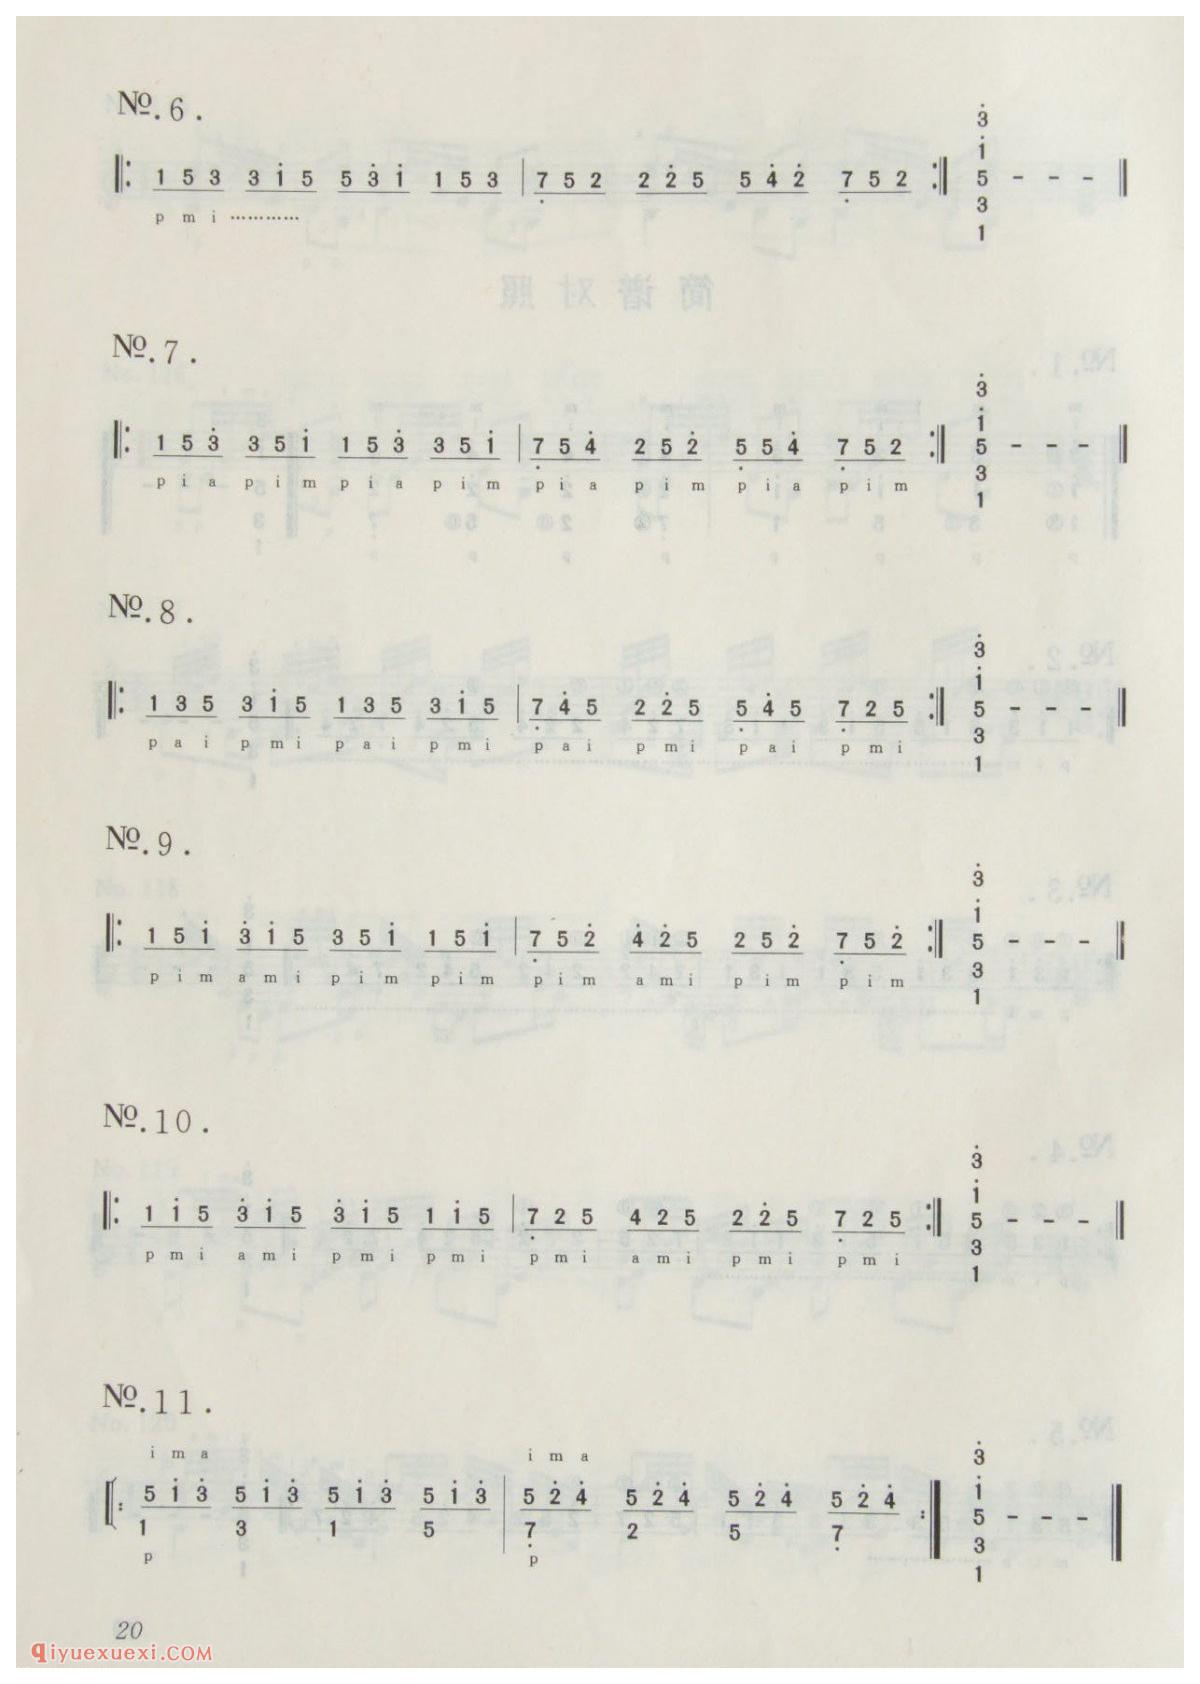 №.6.
3̇
1̇
‖: 1 5 3 3 1̇ 5 5 3̇ 1̇ 1 5 3 | 7̣ 5 2 2 2̇ 5 5 4̇ 2̇ 7̣ 5 2 :‖ 5 - - - ‖
3
p m i …………
1
№.7.
3̇
1̇
‖: 1 5 3̇ 3 5 1̇ 1 5 3̇ 3 5 1̇ | 7̣ 5 4̇ 2 5 2̇ 5̣ 5 4̇ 7̣ 5 2 :‖ 5 - - - ‖
3
p i a p i m p i a p i m p i a p i m p i a p i m
1
№.8.
3̇
1̇
‖: 1 3 5 3 1̇ 5 1 3 5 3 1̇ 5 | 7̣ 4̇ 5 2 2̇ 5 5̣ 4̇ 5 7̣ 2 5 :‖ 5 - - - ‖
3
p a i p m i p a i p m i p a i p m i p a i p m i
1
№.9.
3̇
1̇
‖: 1 5 1̇ 3̇ 1̇ 5 3 5 1̇ 1 5 1̇ | 7̣ 5 2̇ 4̇ 2̇ 5 2 5 2̇ 7̣ 5 2̇ :‖ 5 - - - ‖
3
p i m a m i p i m p i m p i m a m i p i m p i m
1
№.10.
3̇
1̇
‖: 1 1̇ 5 3̇ 1̇ 5 3̇ 1̇ 5 1 1̇ 5 | 7̣ 2 5 4 2 5 2 2̇ 5 7̣ 2 5 :‖ 5 - - - ‖
3
p m i a m i p m i p m i p m i a m i p m i p m i
1
№.11.
i m a i m a
3̇
1̇
‖: 5 1̇ 3̇ 5 1̇ 3̇ 5 1̇ 3̇ 5 1̇ 3̇ | 5 2̇ 4̇ 5 2̇ 4̇ 5 2̇ 4̇ 5 2̇ 4̇ :‖ 5 - - - ‖
1 3 1 5 7̣ 2 5 7̣ 3
p p 1
20
qiyuexuexi.COM